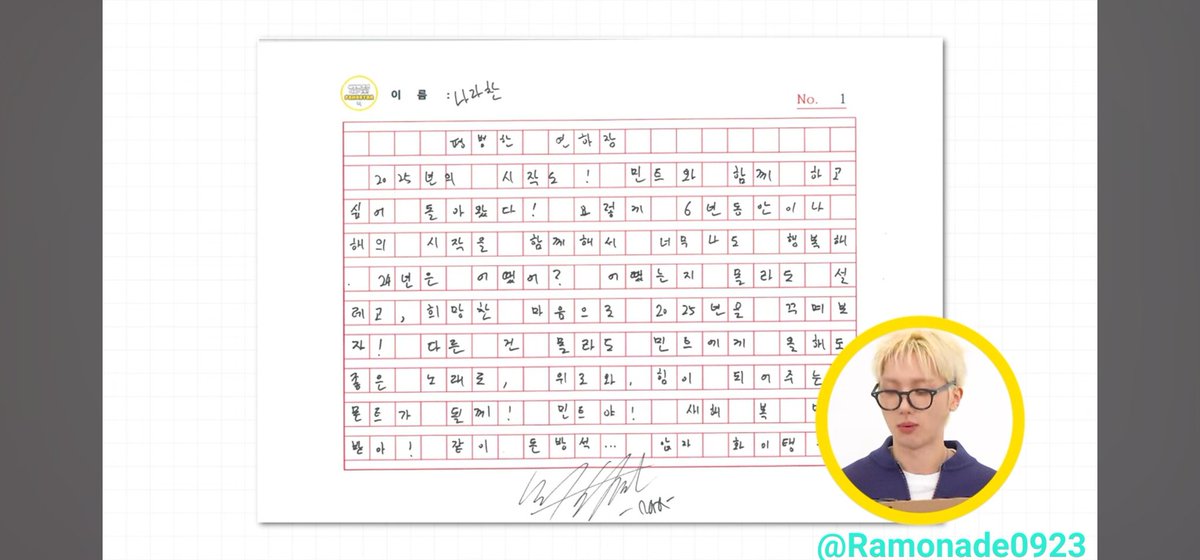 이 름 : 나라찬
No. 1
평범한 연하장
2025년의 시작도! 민트와 함께 하고
싶어 돌아왔다! 요렇게 6년동안이나
해의 시작을 함께해서 너무나도 행복해
. 24년은 어땠어? 어땠는지 몰라도 설
레고, 희망찬 마음으로 2025년을 꾸며보
자! 다른 건 몰라도 민트에게 올해도
좋은 노래로, 위로와, 힘이 되어주는
몬트가 될께! 민트야! 새해 복
받아! 같이 돈방석... 앉자 화이탱
@Ramonade0923